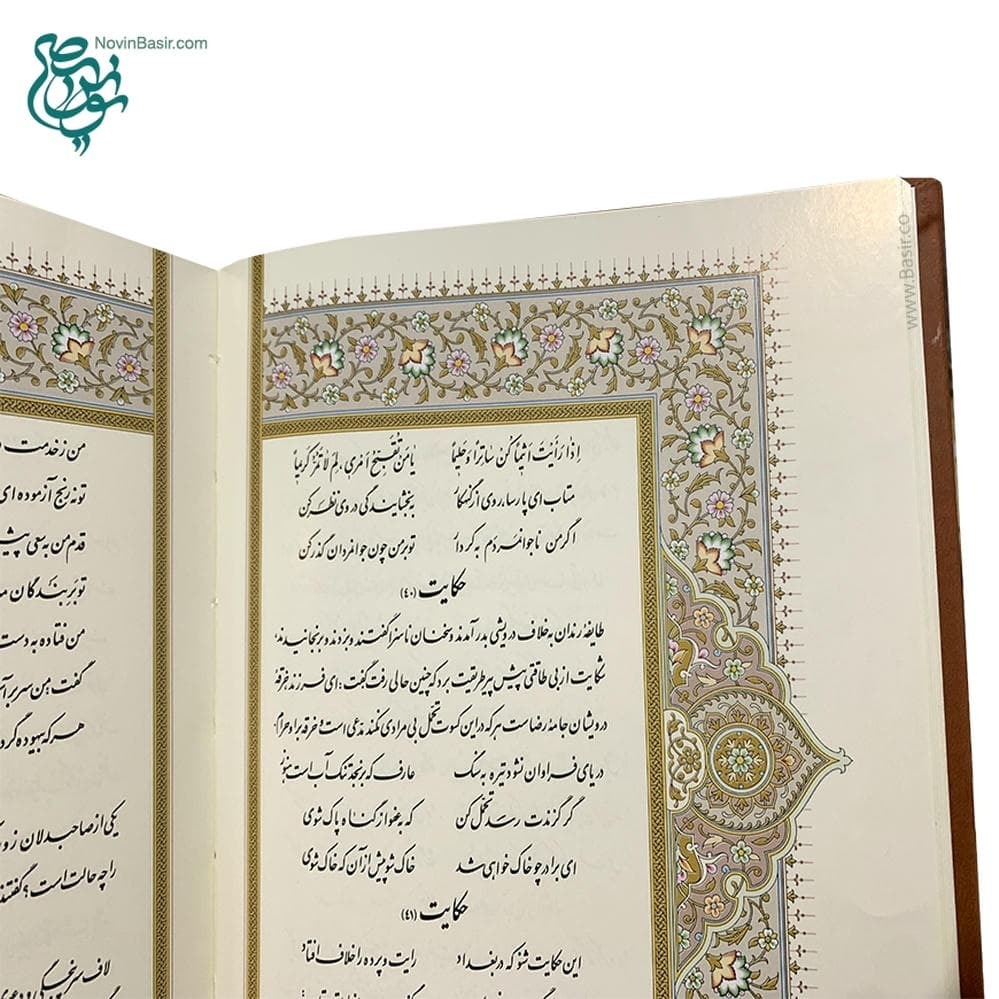 NovinBasir.com
www.Basir.co
إِذَا رَأَيْتَ أَثِيمًا كُنْ سَاتِرًا وَحَلِيمًا يَا مَنْ تُقَبِّحُ أَمْرِي، لِمْ لَا تَمُرُّ كَرِيمًا
متاب ای پارسا، روی از گنهکار به بخشایندگی در وی نظر کن
اگر من ناجوانمردم به کردار تو بر من چون جوانمردان گذر کن
حکایت (۴۰)
طایفهٔ رندان به خلاف درویشی بدر آمدند و سخنان ناسزا گفتند و بزدند و برنجانیدند؛
شکایت از بی طاقتی پیش پیر طریقت برد که چنین حالی رفت گفت: ای فرزند خرقهٔ
درویشان جامهٔ رضاست هر که در این کسوت تحمّل بی مرادی نکند مدعی است و خرقه بر او حرام.
دریای فراوان نشود تیره به سنگ عارف که برنجد تنک آب است هنوز
گر گزندت رسد تحمّل کن که به عفو از گناه پاک شوی
ای برادر چو خاک خواهی شد خاک شو پیش از آن که خاک شوی
حکایت (۴۱)
این حکایت شنو که در بغداد رایت و پرده را خلاف افتاد
من ز خدمت د
تو نه رنج آزموده ای
قدم من به سعی پیش
تو بر بندگان مه
من فتاده به دست
گفت: من سر بر آس
هر که بیهوده گرد
یکی از صاحبدلان زو
را چه حالت است؟ گفتند
لاف سرپنجگی و دعوی